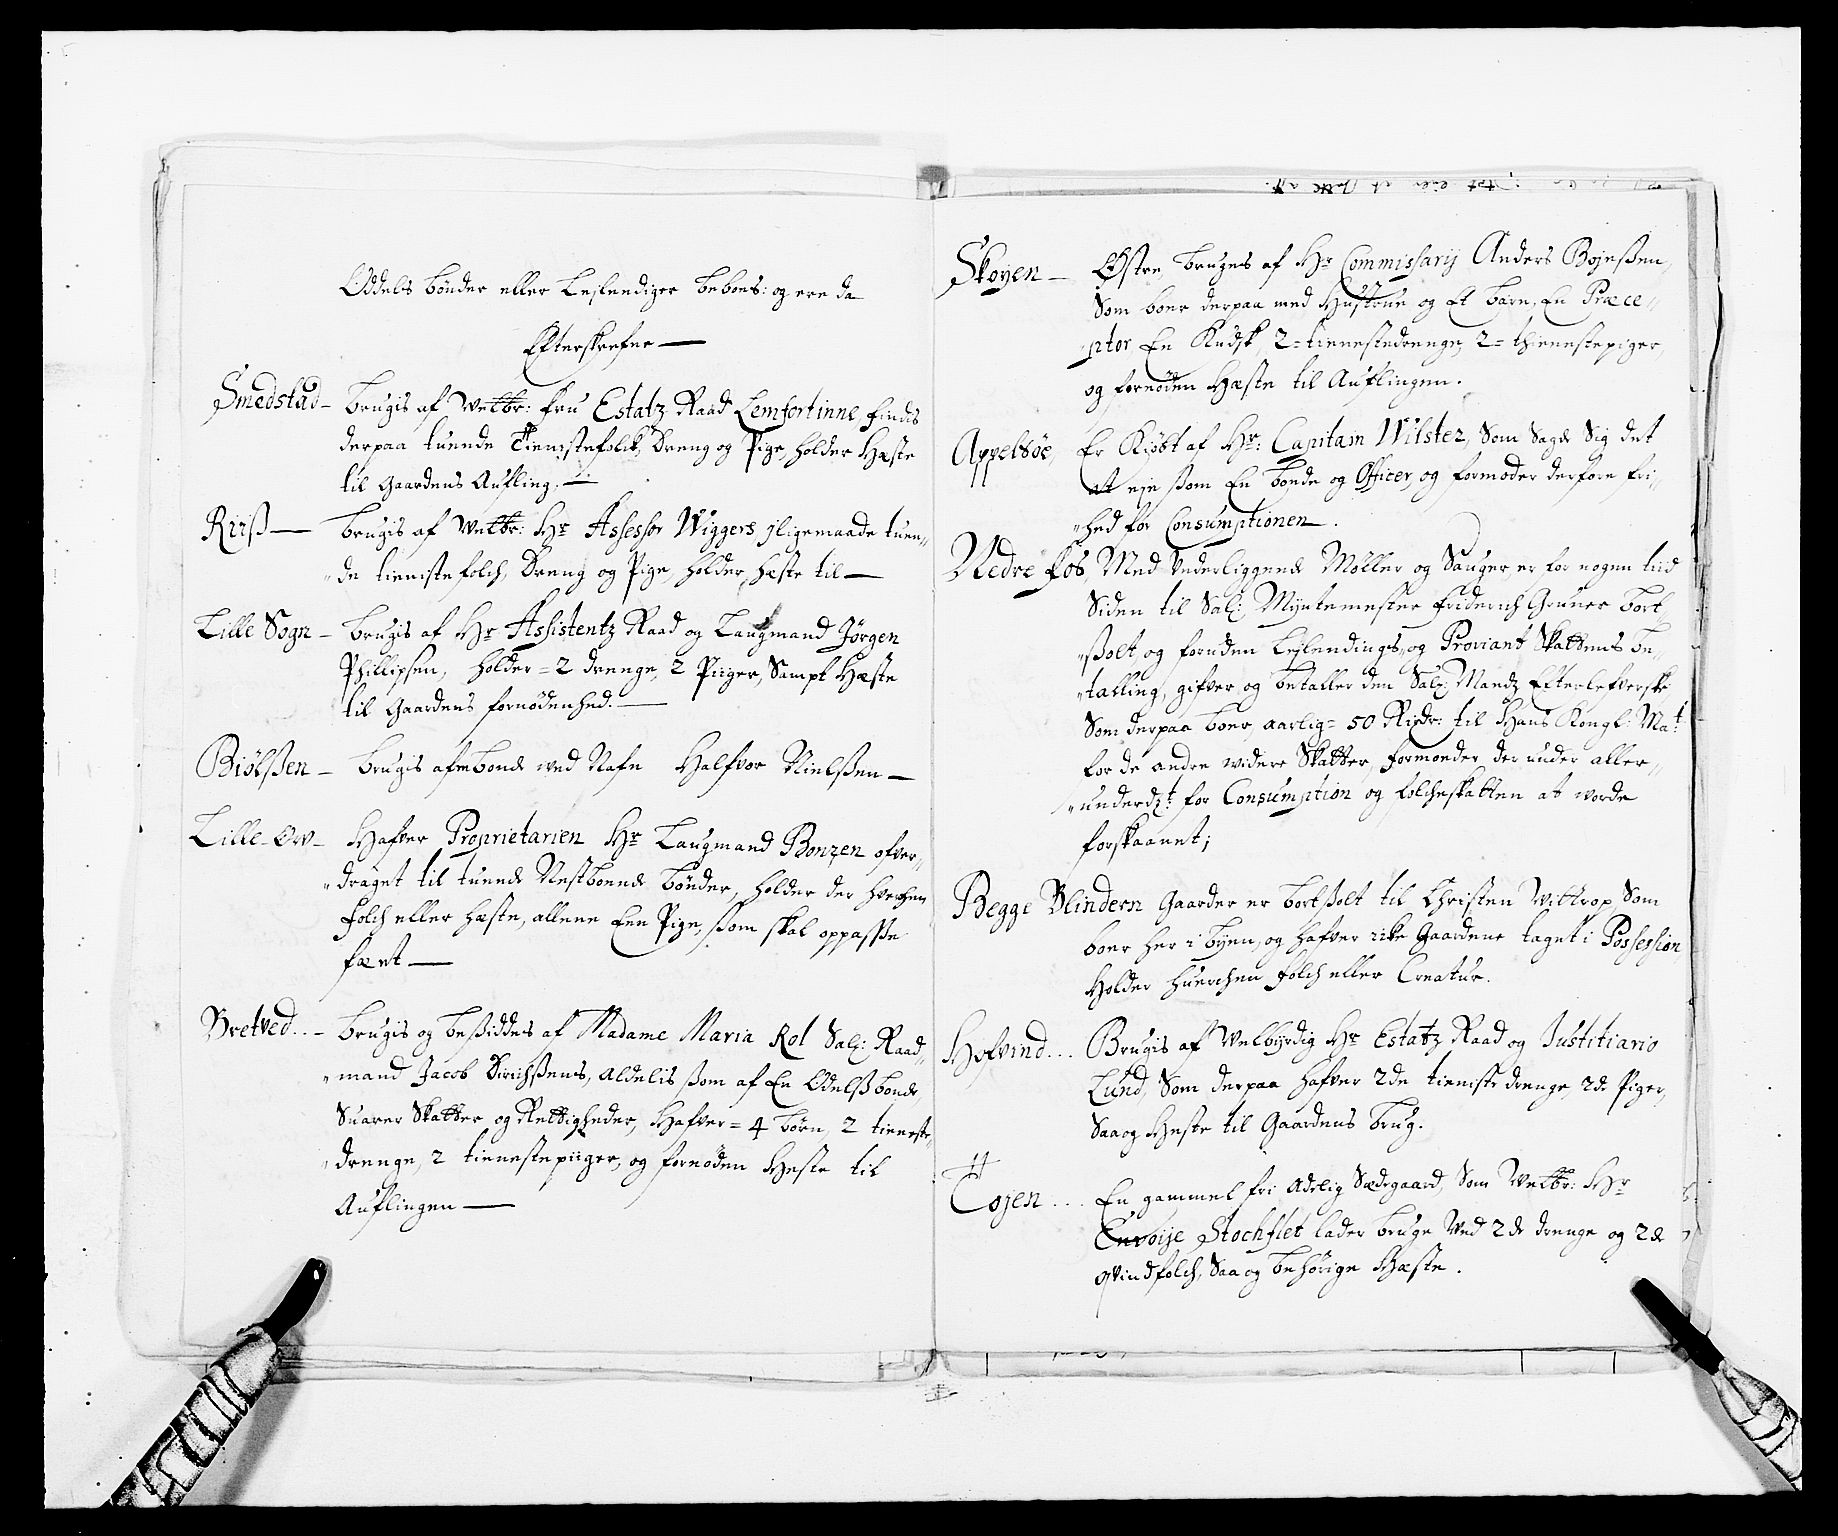 Oddelis bönder eller Lejlendiger beboes: og ere da
Efterskrefne —
Smedstad – brugis af Velbr: fru Estatz Raad Lemfortinne, findis
derpaa tuende Tienistefolck, Dreng og Pige, holder Hæste
til Gaardens Aufling. —
Riiß — brugis af Velbr: Hr Assessor Wiggers, jligemaade tuen„
„de tieniste folch, Dreng og Pige, holder hæste til —
Lille Sogn – brugis af Hr Assistentz Raad og Laugmand Jörgen
Phillipsen, holder = 2 drenge, 2 Piiger, Sampt Hæste
til Gaardens fornödenhed. —
Biölßen – brugis af en bonde ved Nafn Halfvor Nielßen —
Lille-Ow – Hafver Proprietarien Hr Laugmand Bonzen ofver„
„draget til tuende Nestboende bönder, holder der hverchen
folch eller hæste, allene Een Pige, ßom skal oppasse
fæet —
Bretved.. – brugis og beßiddes af Madame Maria Rol Sal: Raad„
„mand Jacob Dirichßens, aldelis ßom af En Odelß bonde,
Suarer Skatter og Rettigheder, Hafver = 4 börn, 2 tieneste„
„drenge, 2 tienestepiiger, og fornöden Heste til
Auflingen —
Skoyen – Østre, bruges af Hr Commissarij Anders Bojeßen,
Som boer derpaa med Hustrue og Et barn, En Præce„
„ptor En Kudsk, 2 = tienestedrenge, 2 = thienestepiger,
og fornöden Hæste til Auflingen.
Appelsöe, Er Kiöbt af Hr: Capitain Wilster, Som Sagde Sig det
at eje ßom En bonde og Officer, og formoder derfore fri„
„hed for Consumptionen.
Nedre fos, Med Underliggende Möller og Sauger, er for nogen tiid
Siden til Sal: Myntemester Friderich Gruner bort„
„ßolt og foruden Lejlendings, og Proviant Skattens be„
„talling, gifver og betaller den Sal: Mandz Efterlefverske
Som derpaa boer, aarlig = 50 Rixdr: til Hans Kongl: Mat:
for de andre widere Skatter, formoder der under aller„
„underdt: for Consumption og folcheskatten at worde
forskaanet;
Begge Blindern Gaarder er bortßolt til Christen Wittrop, Som
boer her i byen, og hafver icke Gaardene taget i Possession
Holder huerchen folch eller Creatur.
Hofvind... Brugis af Welbyrdig Hr Estatz Raad og Justitiario
Lund, Som derpaa hafver 2de tieniste drenge, 2de Piger,
Saa og Heste til Gaardens brug.
Töjen... En gammel fri Adelig Sædegaard, Som Velbr: Hr
Envoije Stochflet lader bruge Ved 2de drenge og 2de
qvindfolch, Saa og behörige Hæste.